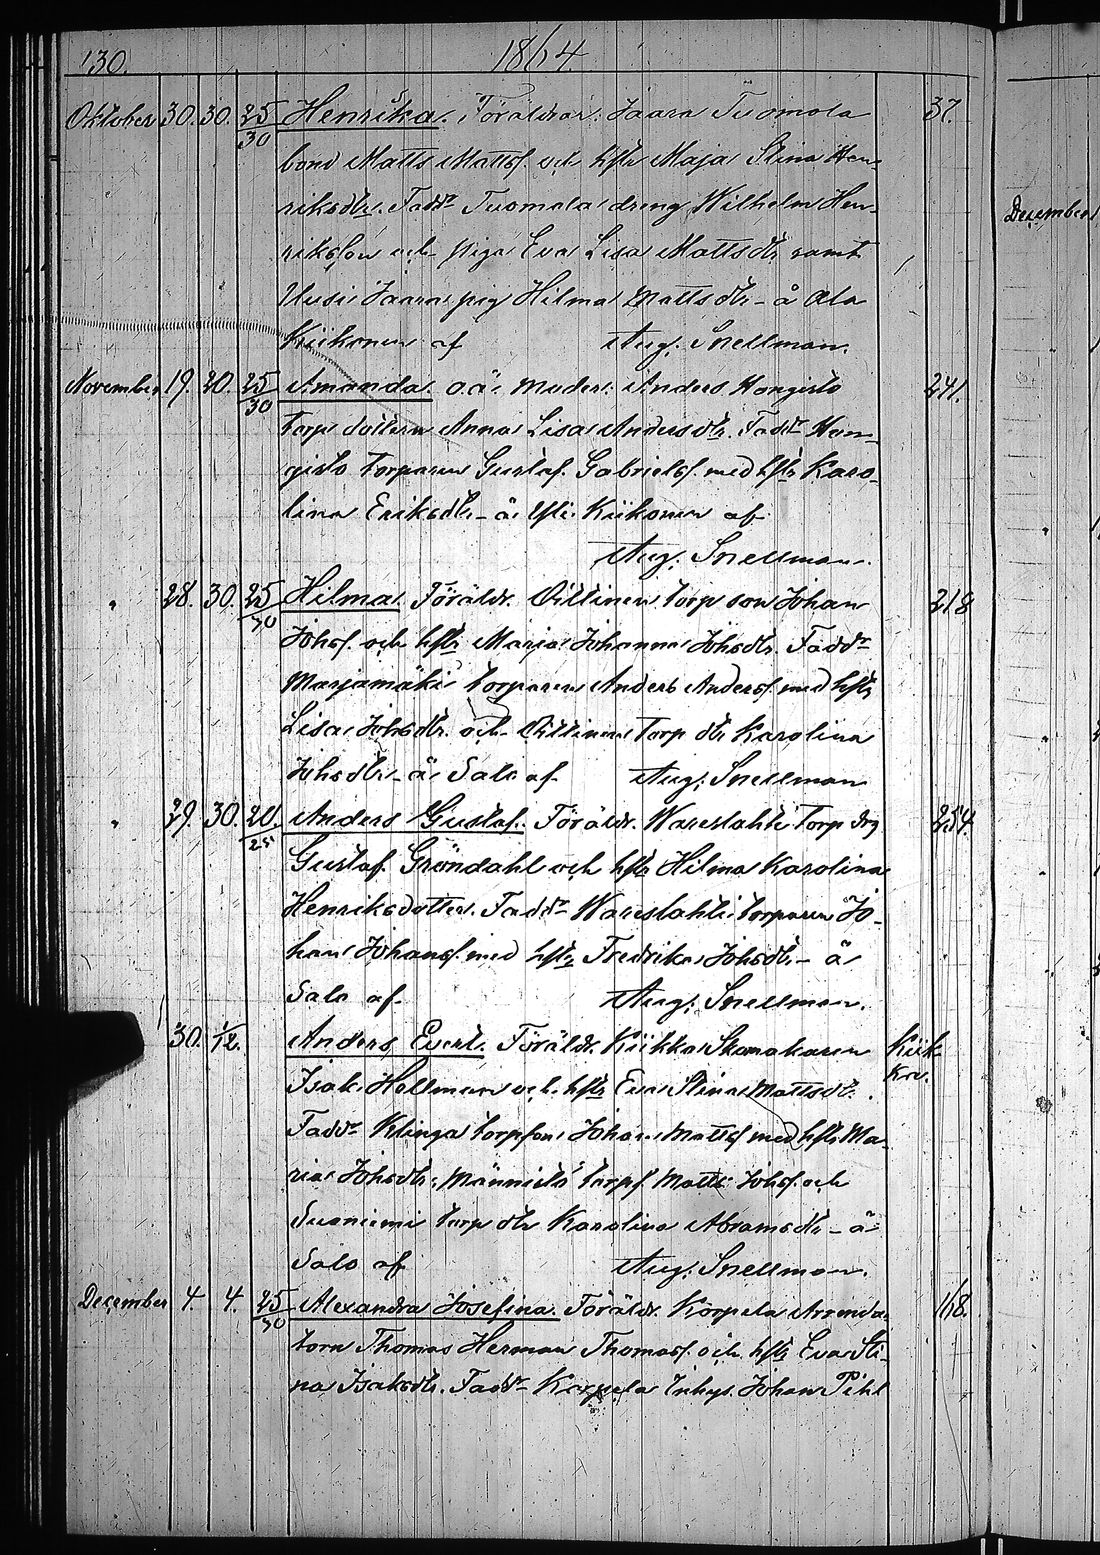 130. 1864.
Oktober 30. 30. 25/30 Henrika. Föräldrar: Jaara Tuomola 37.
bond Matts Mattsf. och hstr Maja Stina Hen-
riksdtr. Faddr Tuomola dreng Wilhelm Hen-
rikson och piga Eva Lisa Mattsdtr samt
Uusi Jaara pig Hilma Mattsdtr - å Ala
Kiikonen af Aug. Snellman.
November 19. 20. 25/30 Amanda. o.ä. Moder: Anders Hongisto 241.
torp dottern Anna Lisa Andersdtr. Faddr Hon-
gisto torparen Gustaf Gabrielsf. med hstr Karo-
lina Eriksdtr - å Yli Kiikonen af
Aug. Snellman.
" 28. 30. 25/30 Hilma. Föräldr. torp son Johan 218
Johsf. och hstr Maria Johanna Johsdtr. Faddr
Marjamäki torparen Anders Andersf. med hstr
Lisa Johsdtr. och torp dtr Karolina
Johsdtr - å Salo af Aug. Snellman
" 29. 30. 20/25 Anders Gustaf. Föräldr. Wareslahti torp drg 254.
Gustaf Gröndahl och hstr Hilma Karolina
Henriksdotter. Faddr Wareslahti torparen Jo-
han Johansf. med hstr Fredrika Johsdtr - å
Salo af Aug. Snellman.
30. 1/12. Anders Evert. Föräldr. Kiikka Skomakaren Kiik-
ka.
Isak Hollman och hstr Eva Stina Mattsdtr.
Faddr Klinga torpson Johan Mattsf med hstr Ma-
ria Johsdtr, Männistö torpf Matts Johsf. och
Suoniemi torp dtr Karolina Abramsdtr - å
Salo af Aug. Snellman.
December 4. 4. 25/30 Alexandra Josefina. Föräldr. Korpela Arrenda- 168.
torn Thomas Herman Thomasf. och hstr Eva Sti-
na Isaksdtr. Faddr Korpela Inhys. Johan Pihl
December